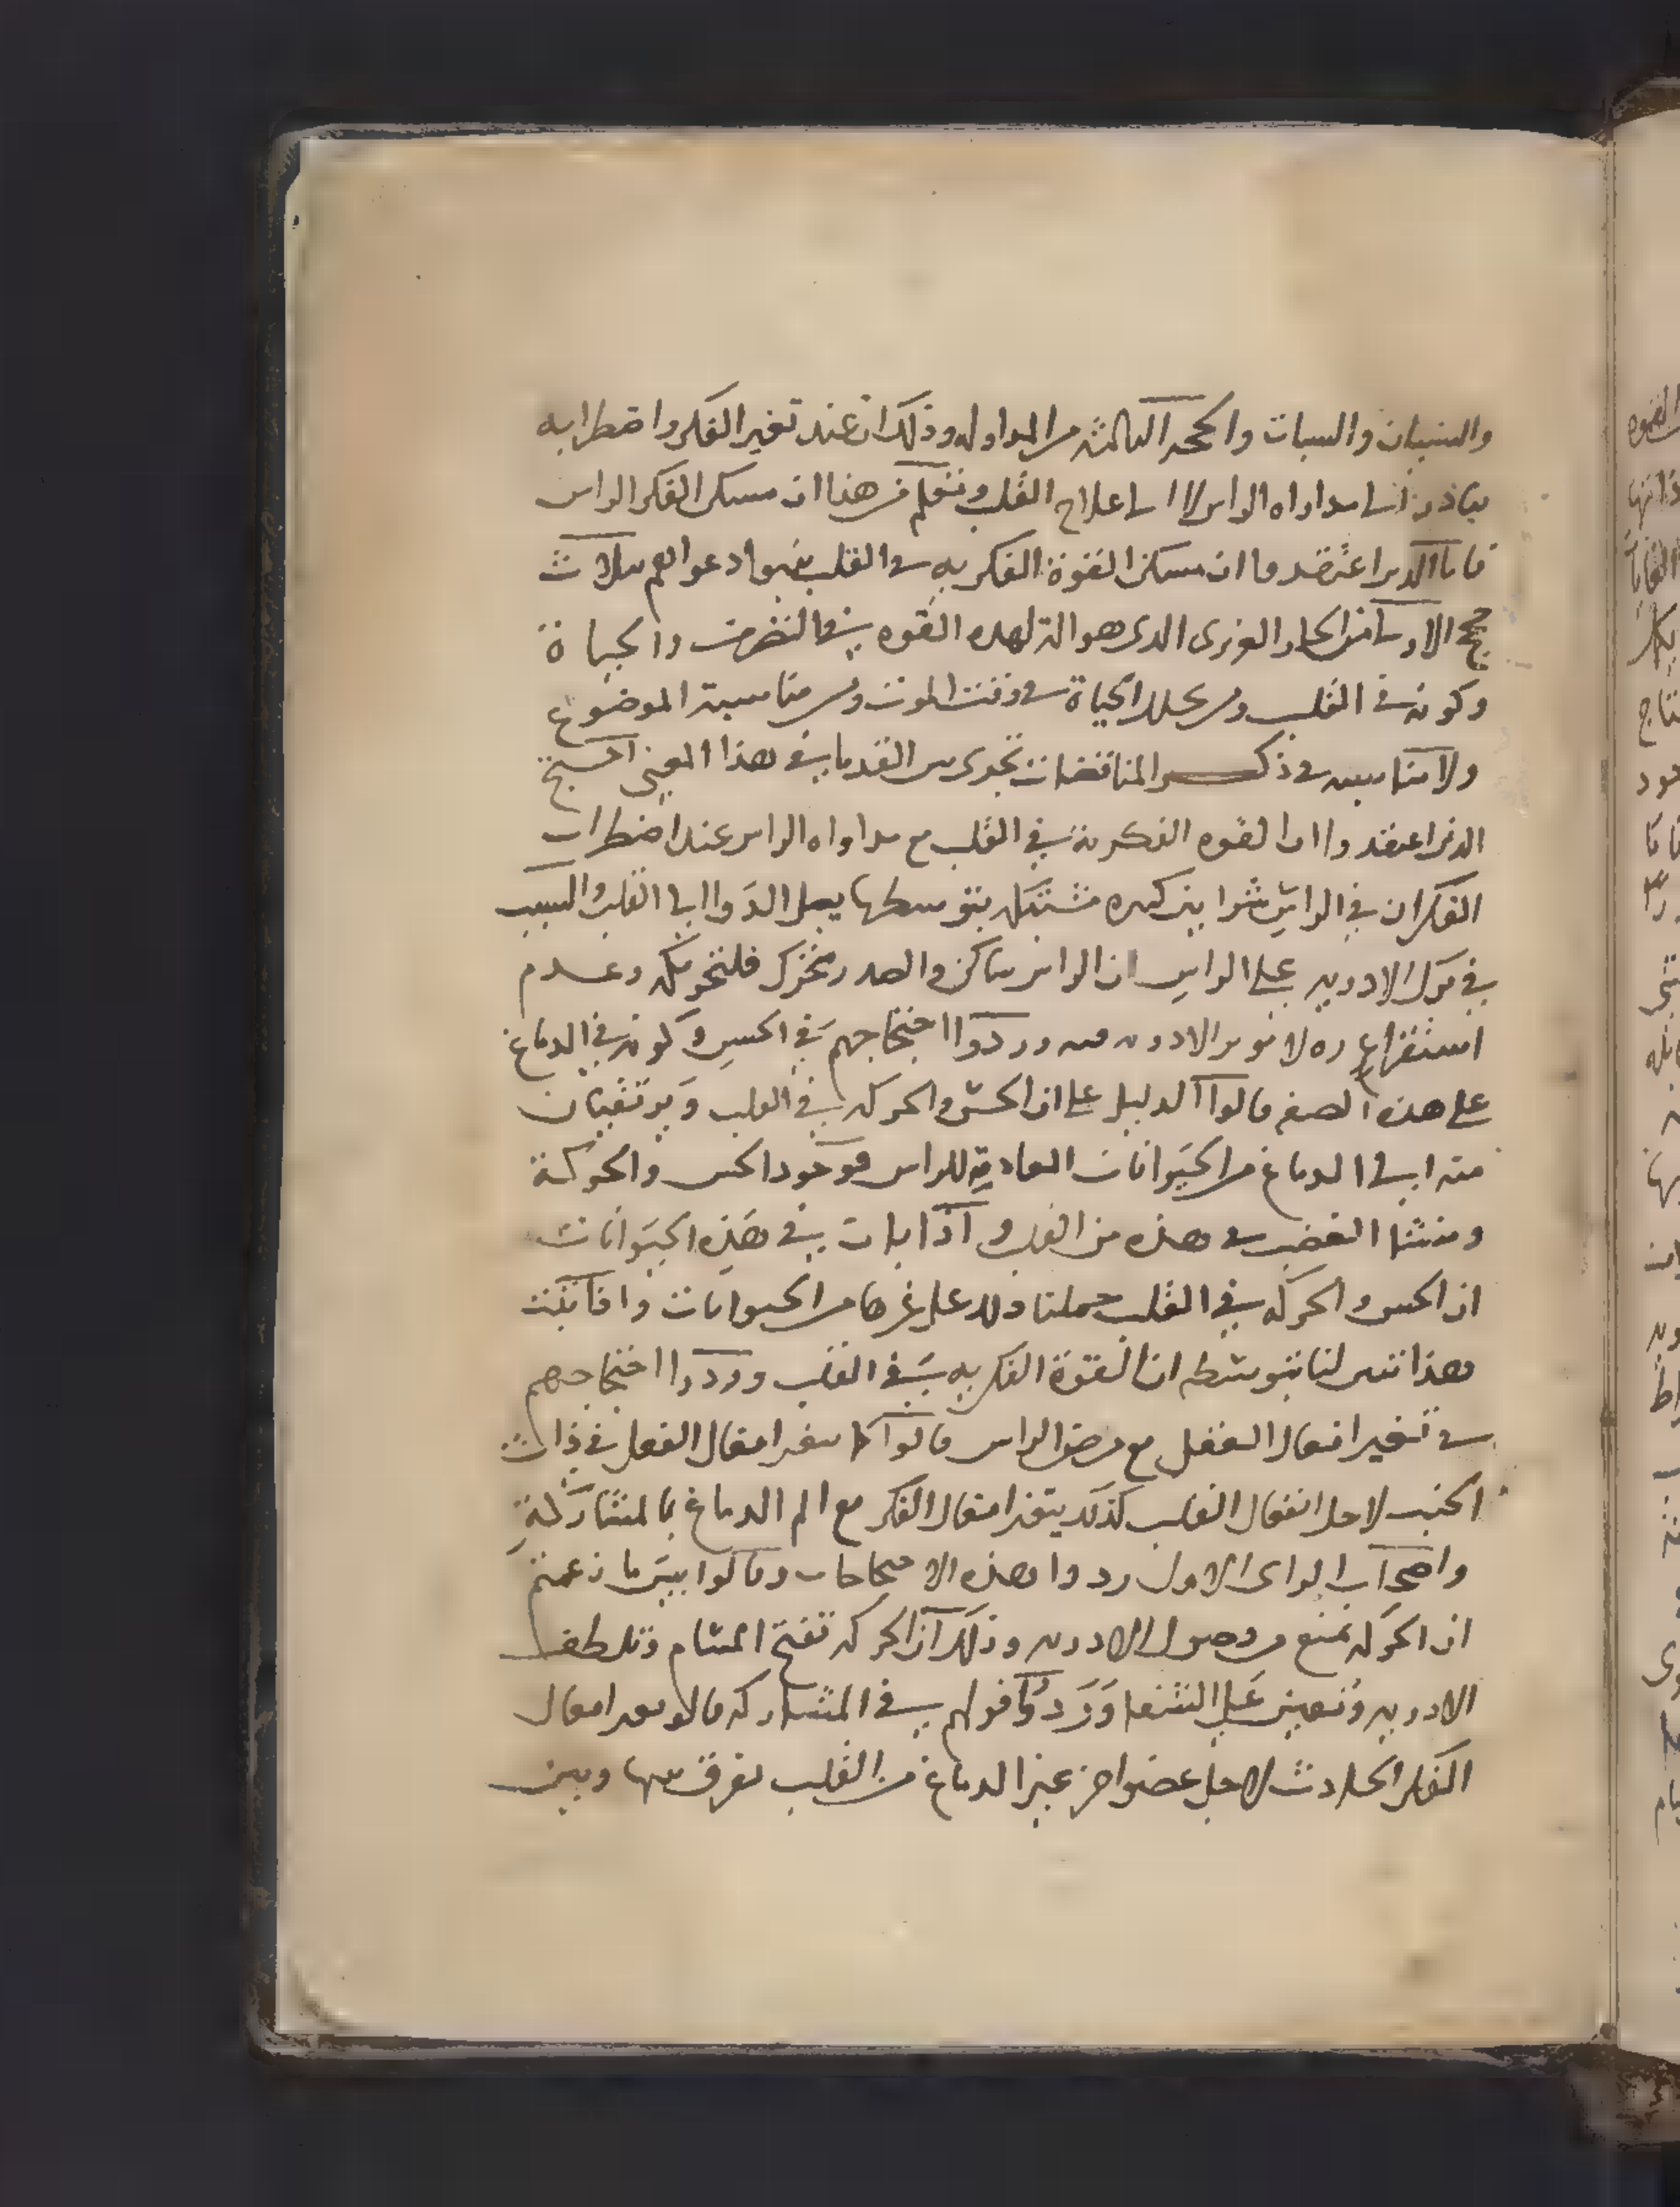 والنسيان والسبات والحجه الثالثه من المداوله وذلك ان عند تغير الفكر واضطرابه
يبادرون الى مداواه الراس لا الى علاج القلب ونعلم من هذا ان مسكن الفكر الراس
فاما الدين اعتقدوا ان مسكن القوة الفكريه في القلب فيوردعواهم بثلاث
حجج الاولى من الحار الغريزى الدى هو الة لهده القوه في التصرف والحياة
وكونه في القلب ومن تحلل الحياة في وقت الموت ومن مناسبة الموضوع
ولا مناسبه في ذكر المناقضات تجرى بين القدما في هذا المعنى احتج
الذين اعتقدوا ان القوه الفكرية في القلب مع مداواه الراس عند اضطراب
الفكر ان في الراس شرايين كبيره مشتبكه بتوسطها يصل الدوا الى القلب والسبب
في ترك الادويه على الراس ان الراس ساكن والصدر متحرك فلتحركه وعدم
استقراره لا تؤثر الادويه فيه وردوا احتجاجهم في الحس وكونه في الدماغ
على هذه الصفه قالوا الدليل على ان الحس والحركه في القلب ويرتقيان
منه الى الدماغ من الحيوانات العادمة للراس فوجود الحس والحركة
ومنشا الغضب في هذه من القلب واذا بان في هذه الحيوانات
ان الحس والحركه في القلب حملنا ذلك على غيرها من الحيوانات واذا ثبت
هذا تبين لنا بتوسطه ان القوة الفكريه في القلب وردوا احتجاجهم
في تغير افعال العقل مع مرض الراس قالوا كما يتغير افعال العقل في ذات
الجنب لاجل انفعال القلب كذلك يتغير افعال الفكر مع الم الدماغ بالمشاركة
واصحاب الراى الاول ردوا هذه الاحتجاجات وقالوا بيس ما زعمتم
ان الحركه تمنع من وصول الادويه وذلك ان الحركه تفتح المسام وتلطف
الادويه وتعين على الشفا وردوا قولهم في المشاركه قالوا تغير افعال
الفكر الحادث لاجل عضو اخر غير الدماغ من القلب نفرق بينها وبين